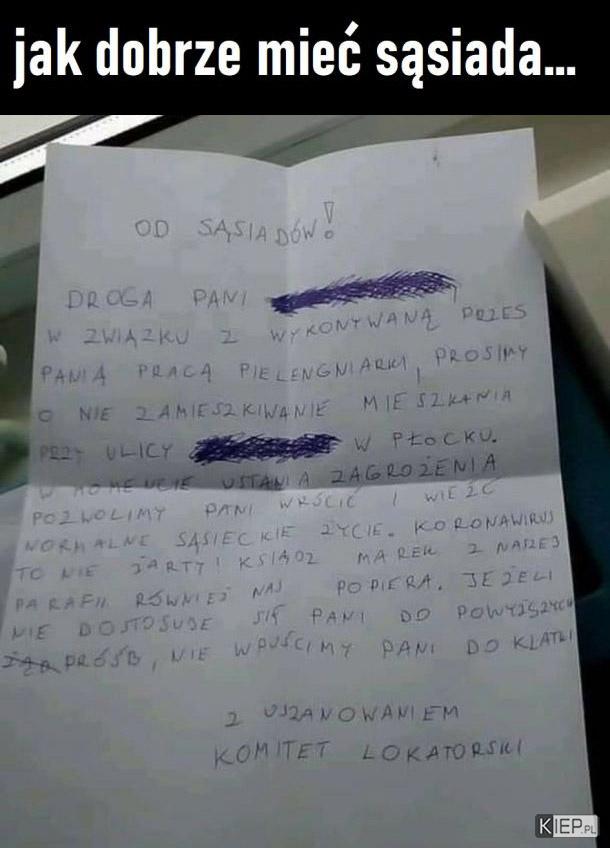 jak dobrze mieć sąsiada...
OD SĄSIADÓW!
DROGA PANI
W ZWIĄZKU Z WYKONYWANĄ PRZES
PANIĄ PRACĄ PIELENGNIARKI, PROSIMY
O NIE ZAMIESZKIWANIE MIESZKANIA
PRZY ULICY W PŁOCKU.
W MOMENCIE USTANIA ZAGROŻENIA
POZWOLIMY PANI WRÓCIĆ I WIEŹĆ
NORMALNE SĄSIECKIE ŻYCIE. KORONAWIRUS
TO NIE ŻARTY! KSIĄDZ MAREK Z NASZEJ
PARAFII RÓWNIEŻ NAS POPIERA. JEŻELI
NIE DOSTOSUJE SIĘ PANI DO POWYŻSZYCH
PRÓŚB, NIE WPUŚCIMY PANI DO KLATKI
Z USZANOWANIEM
KOMITET LOKATORSKI
KIEP.PL